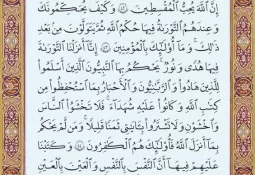 إِنَّ ٱللَّهَ يُحِبُّ ٱلْمُقْسِطِينَ ۝ وَكَيْفَ يُحَكِّمُونَكَ
وَعِندَهُمُ ٱلتَّوْرَىٰةُ فِيهَا حُكْمُ ٱللَّهِ ثُمَّ يَتَوَلَّوْنَ مِنۢ بَعْدِ
ذَٰلِكَ وَمَآ أُو۟لَٰٓئِكَ بِٱلْمُؤْمِنِينَ ۝ إِنَّآ أَنزَلْنَا ٱلتَّوْرَىٰةَ
فِيهَا هُدًى وَنُورٌ يَحْكُمُ بِهَا ٱلنَّبِيُّونَ ٱلَّذِينَ أَسْلَمُوا۟
لِلَّذِينَ هَادُوا۟ وَٱلرَّبَّٰنِيُّونَ وَٱلْأَحْبَارُ بِمَا ٱسْتُحْفِظُوا۟ مِن
كِتَٰبِ ٱللَّهِ وَكَانُوا۟ عَلَيْهِ شُهَدَآءَ فَلَا تَخْشَوُا۟ ٱلنَّاسَ
وَٱخْشَوْنِ وَلَا تَشْتَرُوا۟ بِـَٔايَٰتِى ثَمَنًا قَلِيلًا وَمَن لَّمْ يَحْكُم
بِمَآ أَنزَلَ ٱللَّهُ فَأُو۟لَٰٓئِكَ هُمُ ٱلْكَٰفِرُونَ ۝ وَكَتَبْنَا
عَلَيْهِمْ فِيهَآ أَنَّ ٱلنَّفْسَ بِٱلنَّفْسِ وَٱلْعَيْنَ بِٱلْعَيْنِ